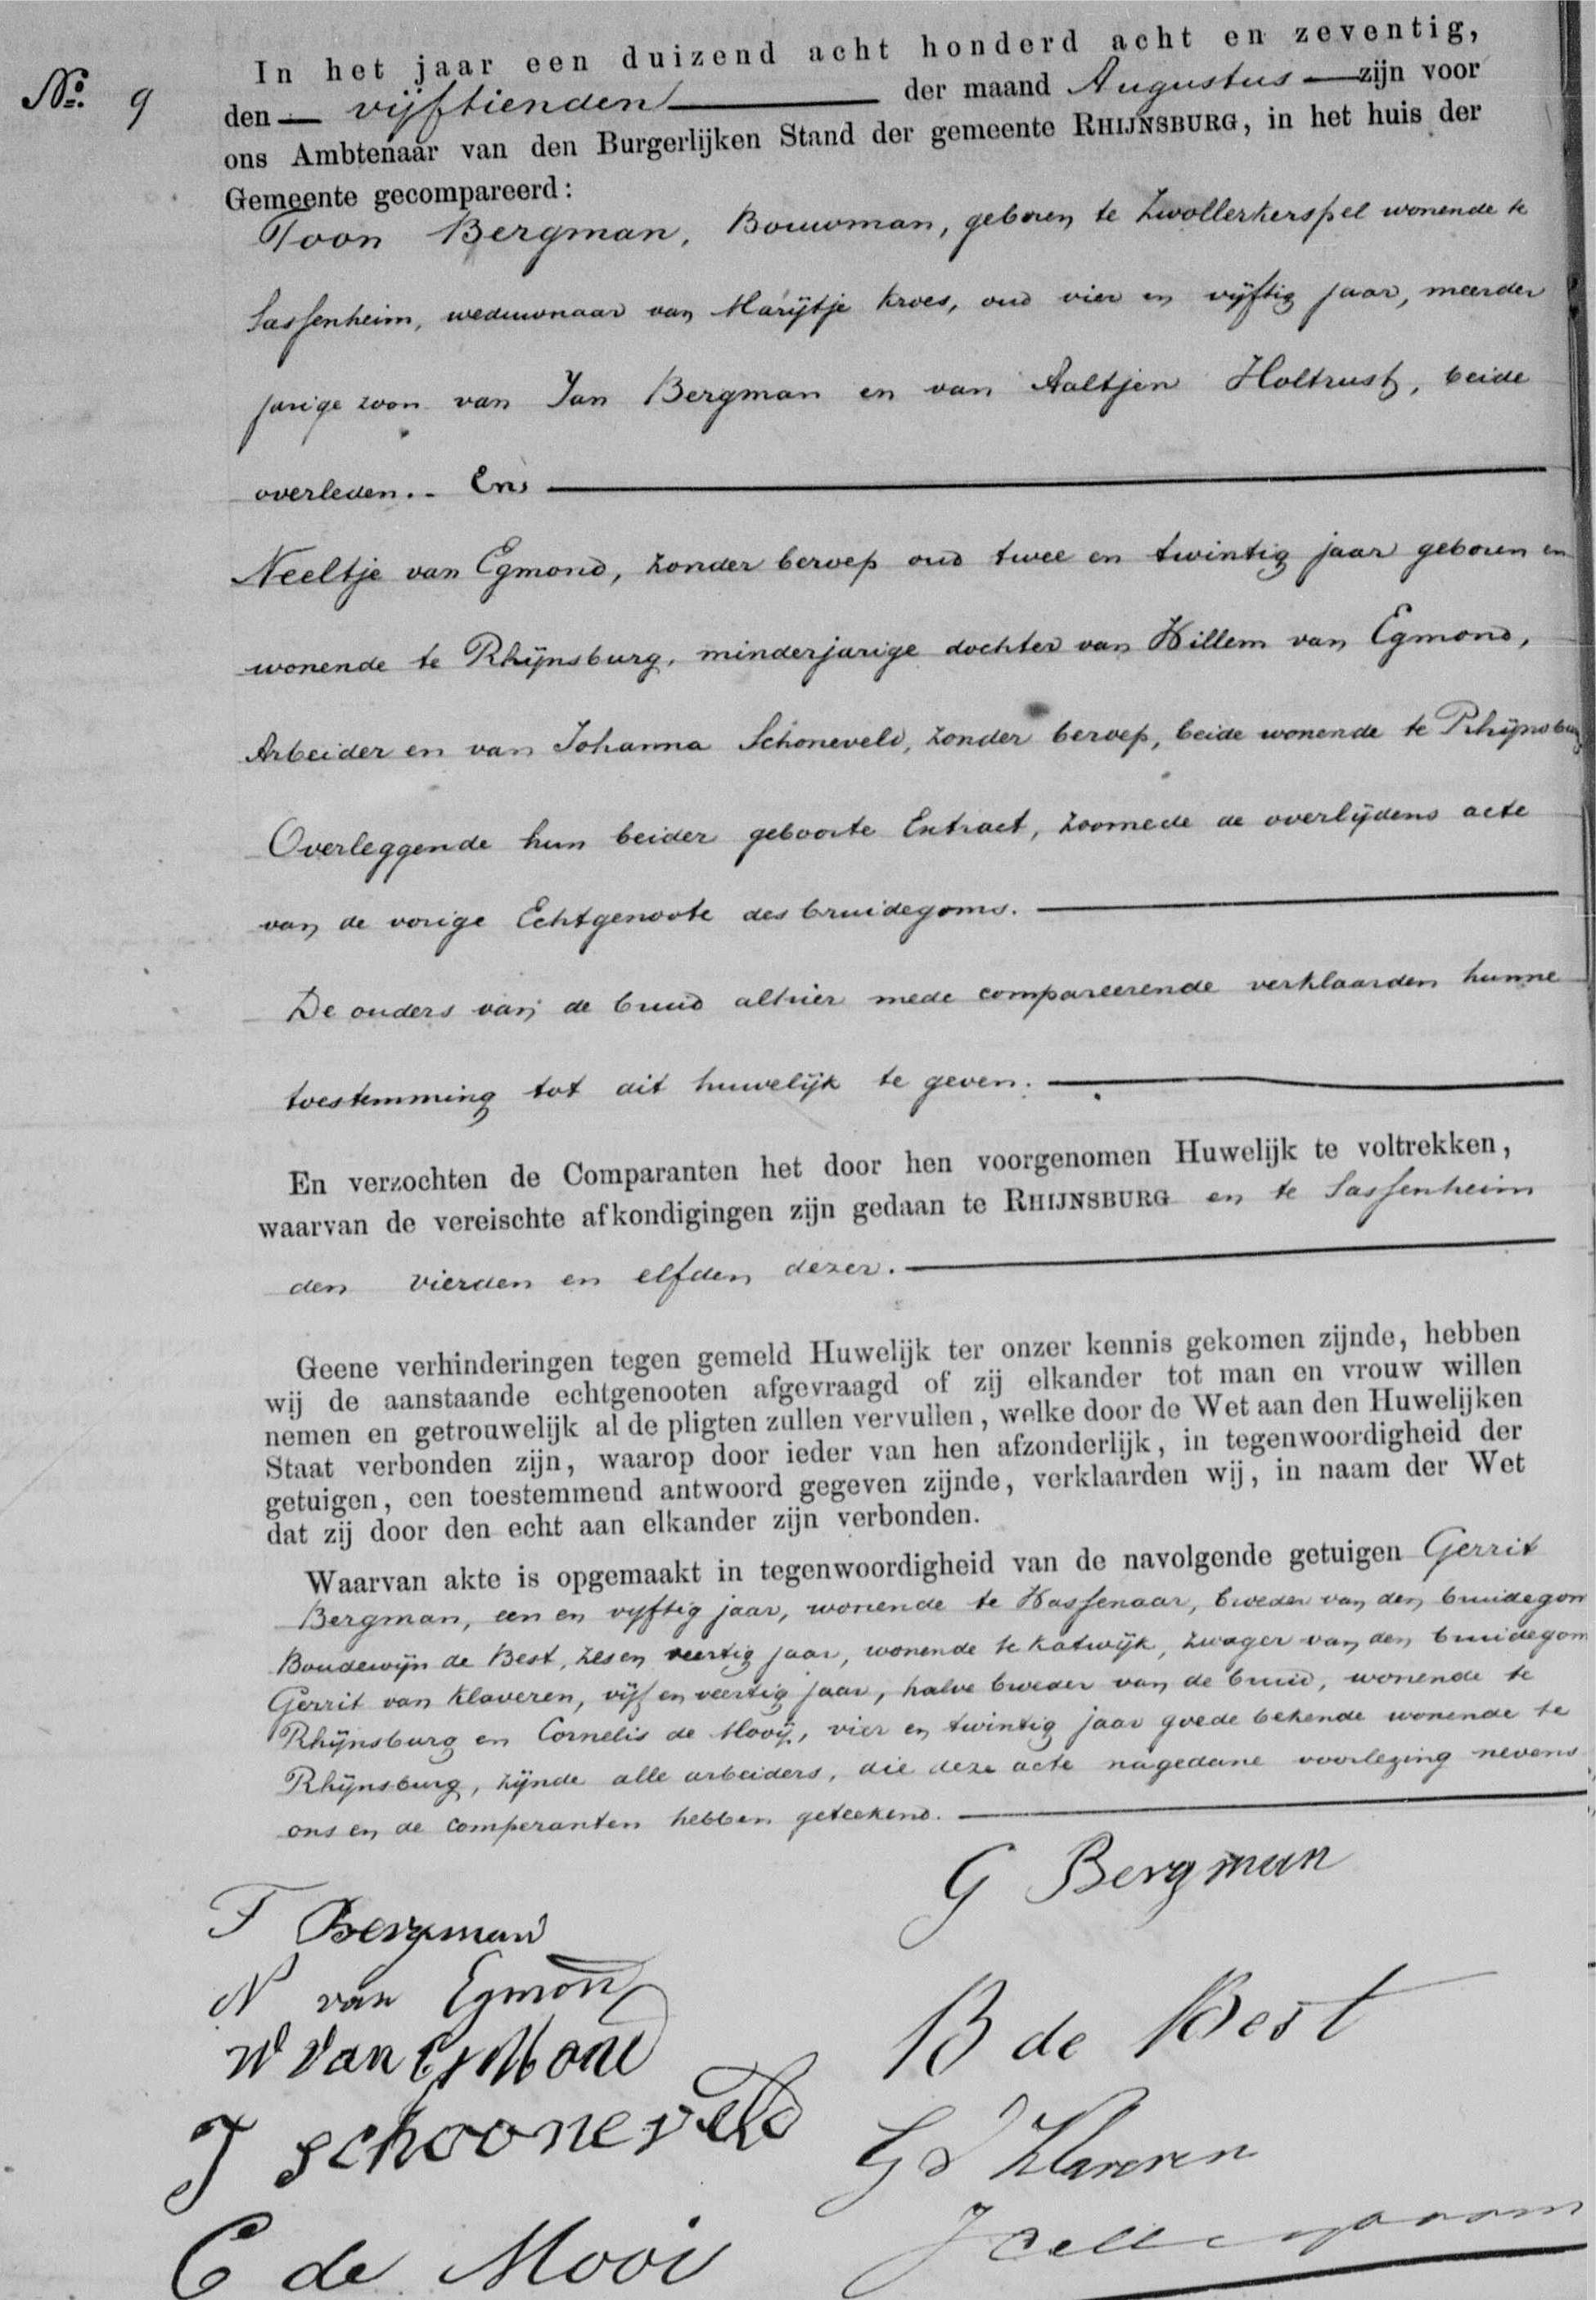 No. 9
In het jaar een duizend acht honderd acht en zeventig,
den vijftienden der maand Augustus zijn voor
ons Ambtenaar van den Burgerlijken Stand der gemeente RHIJNSBURG, in het huis der
Gemeente gecompareerd:
Toon Bergman, Bouwman, geboren te Zwollerkerspel wonende te
Sassenheim, weduwnaar van Marijtje Kroes, oud vier en vijftig jaar, meerder
jarige zoon van Jan Bergman en van Aaltjen Holtrust, beide
overleden. En
Neeltje van Egmond, zonder beroep oud twee en twintig jaar geboren en
wonende te Rhijnsburg, minderjarige dochter van Willem van Egmond,
Arbeider en van Johanna Schoneveld, zonder beroep, beide wonende te Rhijnsburg
Overleggende hun beider geboorte Extract, zoomede de overlijdens acte
van de vorige Echtgenoote des bruidegoms.
De ouders van de bruid alhier mede compareerende verklaarden hunne
toestemming tot dit huwelijk te geven.
En verzochten de Comparanten het door hen voorgenomen Huwelijk te voltrekken,
waarvan de vereischte afkondigingen zijn gedaan te RHIJNSBURG en te Sassenheim
den vierden en elfden dezer.
Geene verhinderingen tegen gemeld Huwelijk ter onzer kennis gekomen zijnde, hebben
wij de aanstaande echtgenooten afgevraagd of zij elkander tot man en vrouw willen
nemen en getrouwelijk al de pligten zullen vervullen, welke door de Wet aan den Huwelijken
Staat verbonden zijn, waarop door ieder van hen afzonderlijk, in tegenwoordigheid der
getuigen, een toestemmend antwoord gegeven zijnde, verklaarden wij, in naam der Wet
dat zij door den echt aan elkander zijn verbonden.
Waarvan akte is opgemaakt in tegenwoordigheid van de navolgende getuigen Gerrit
Bergman, een en vijftig jaar, wonende te Wassenaar, broeder van den bruidegom
Boudewijn de Best, zes en veertig jaar, wonende te Katwijk, zwager van den bruidegom
Gerrit van Klaveren, vijf en veertig jaar, halve broeder van de bruid, wonende te
Rhijnsburg en Cornelis de Mooij, vier en twintig jaar goede bekende wonende te
Rhijnsburg, zijnde alle arbeiders, die deze acte nagedane voorlezing nevens
ons en de comperanten hebben geteekend.
G Bergman
T Bergman
N van Egmond
W van Egmond
B de Best
J schooneveld
G v Klaveren
C de Mooi